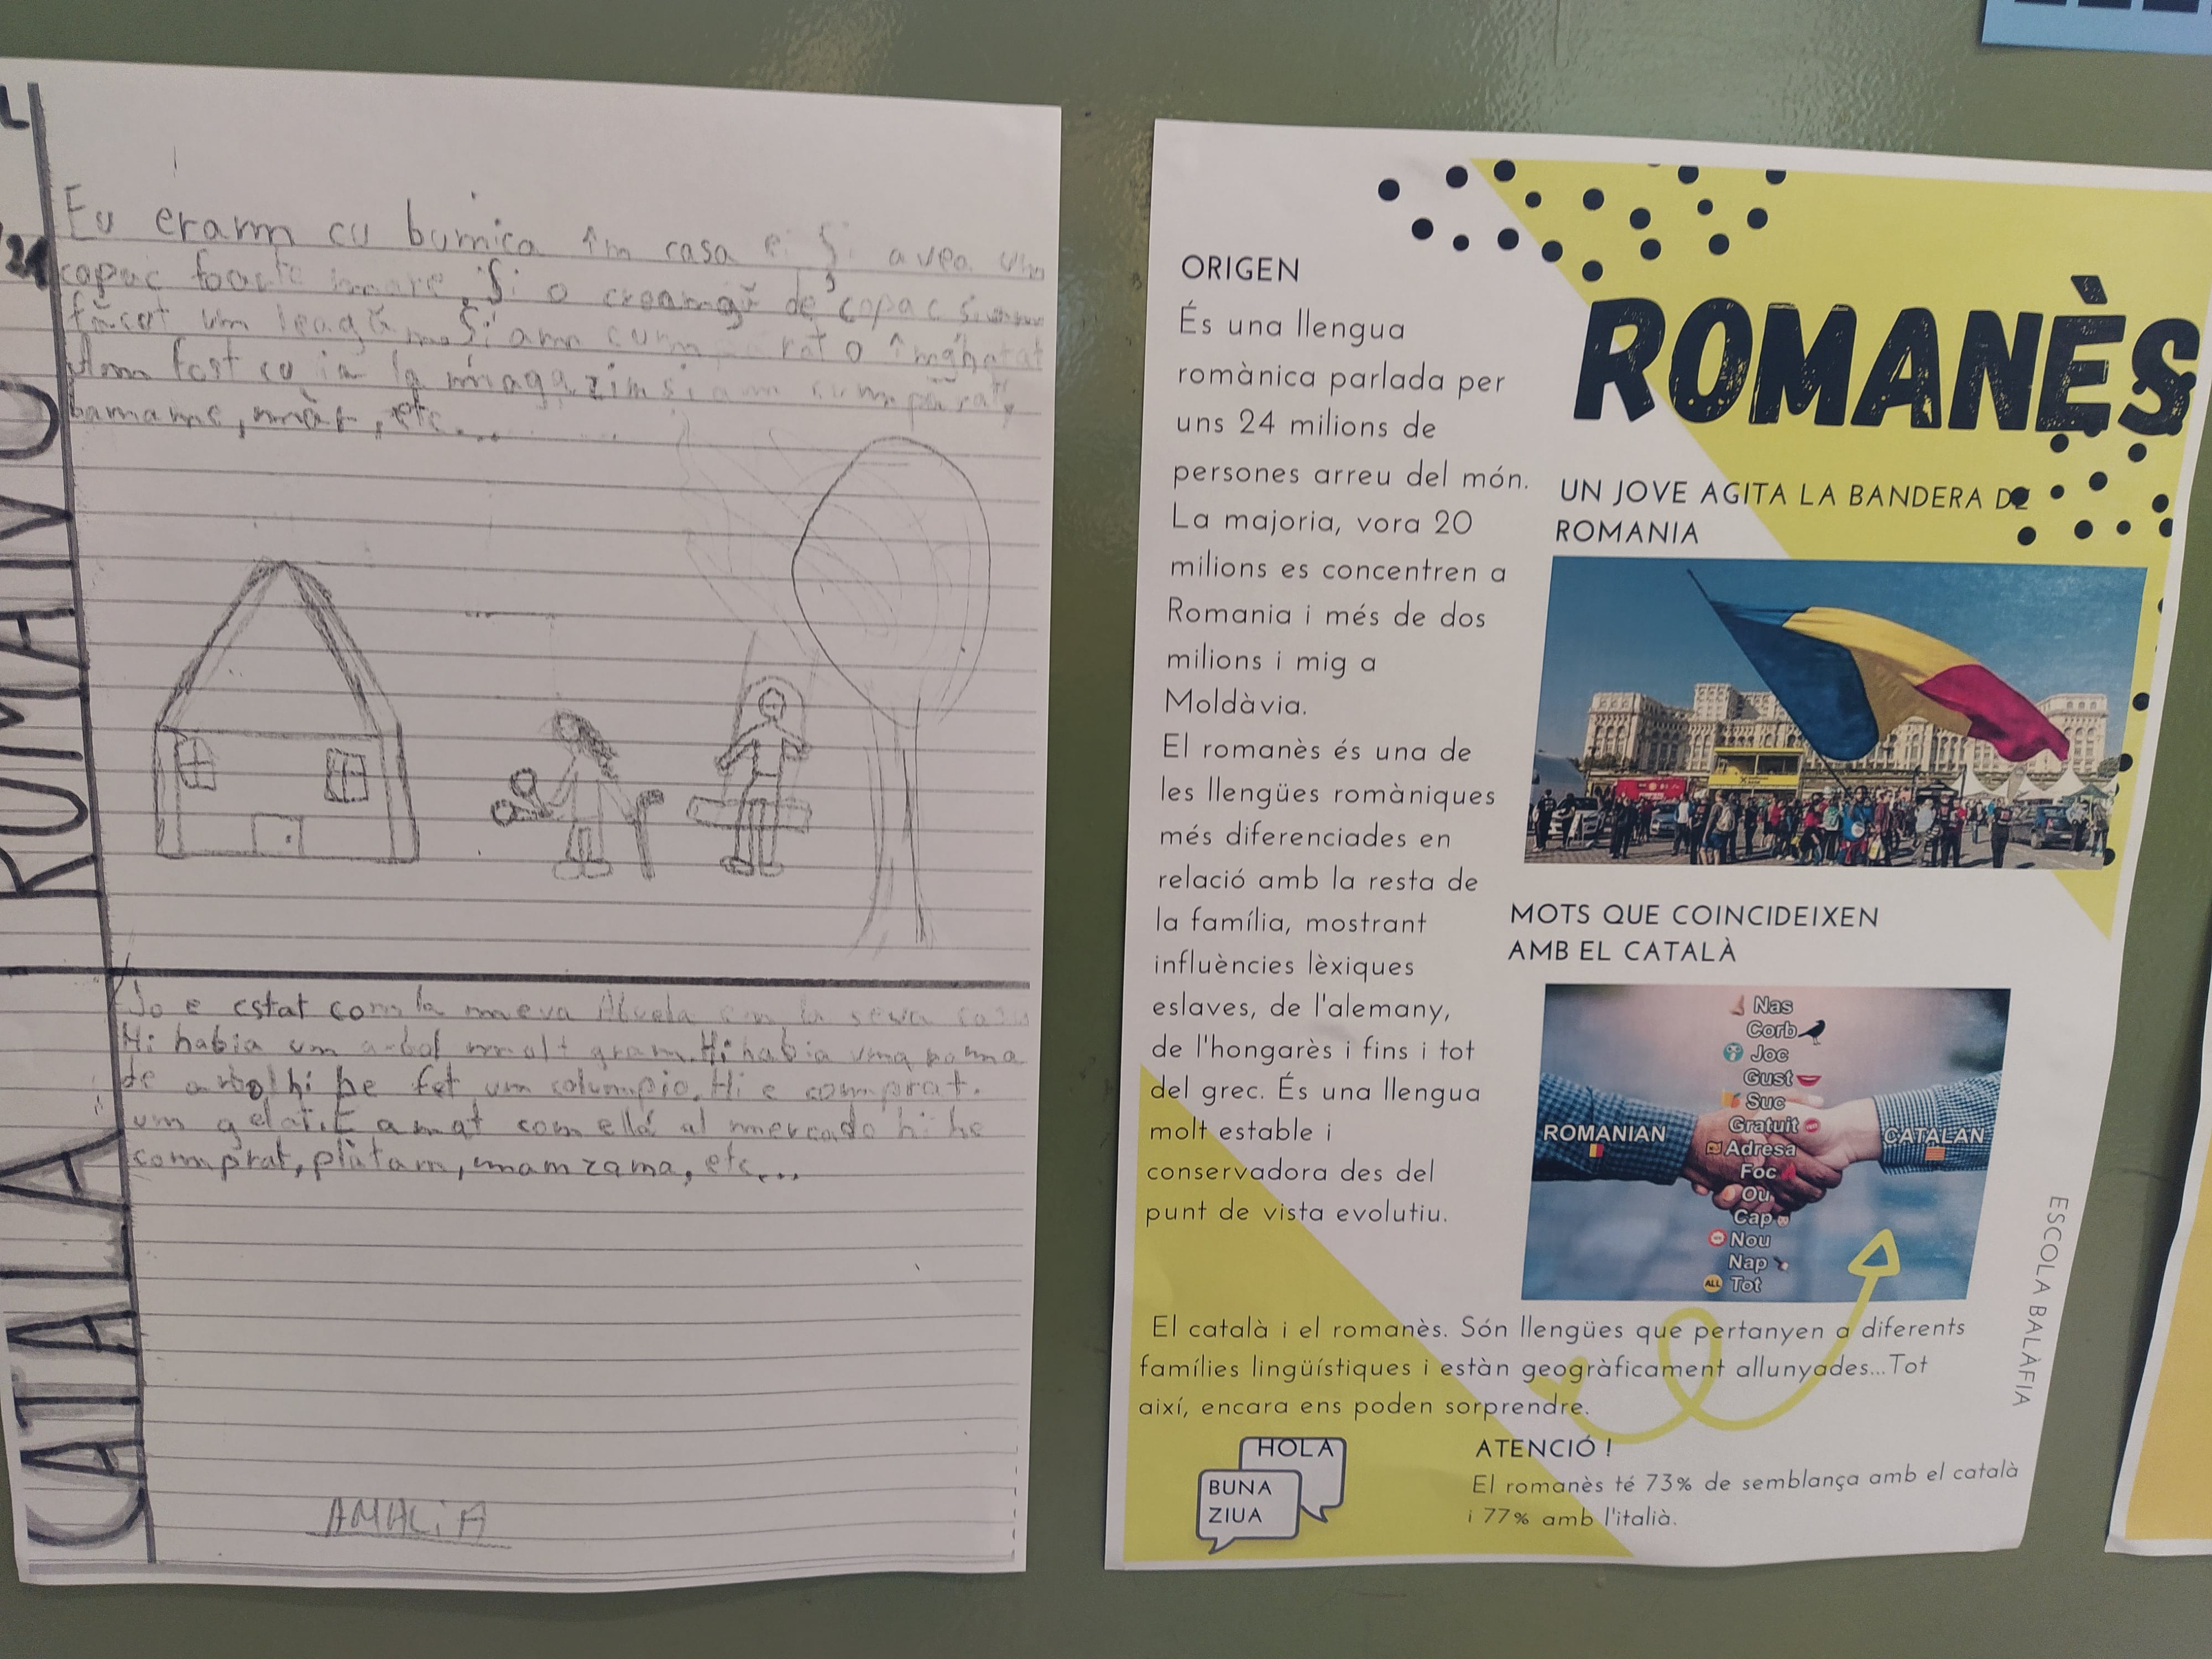 CATALÀ I ROMANO
Eu eram cu bumica îm casa ei Și avea um
copac foarte mare. Și o creamgă de copac și am
făcut um leagă m. Și am cumpărat o îmghețat
Am fost cu ia la magazim și am cumpărat,
bamame, măr, etc....
Jo e estat com la meva Abuela em la seva casa
Hi habia um arbol molt gram. Hi habia uma rama
de arbol hi he fet um columpio. Hi e comprat.
um gelat. E amat com ella al mercado hi he
comprat, plàtam, mamzama, etc...
AMALiA
ROMANÈS
ORIGEN
És una llengua
romànica parlada per
uns 24 milions de
persones arreu del món.
La majoria, vora 20
milions es concentren a
Romania i més de dos
milions i mig a
Moldàvia.
El romanès és una de
les llengües romàniques
més diferenciades en
relació amb la resta de
la família, mostrant
influències lèxiques
eslaves, de l'alemany,
de l'hongarès i fins i tot
del grec. És una llengua
molt estable i
conservadora des del
punt de vista evolutiu.
UN JOVE AGITA LA BANDERA DE
ROMANIA
MOTS QUE COINCIDEIXEN
AMB EL CATALÀ
Nas
Corb
Joc
Gust
Suc
Gratuit
Adresa
Foc
Ou
Cap
Nou
Nap
ALL Tot
ROMANIAN
CATALAN
ESCOLA BALÀFIA
El català i el romanès. Són llengües que pertanyen a diferents
famílies lingüístiques i estàn geogràficament allunyades...Tot
així, encara ens poden sorprendre.
HOLA
BUNA
ZIUA
ATENCIÓ !
El romanès té 73% de semblança amb el català
i 77% amb l'italià.